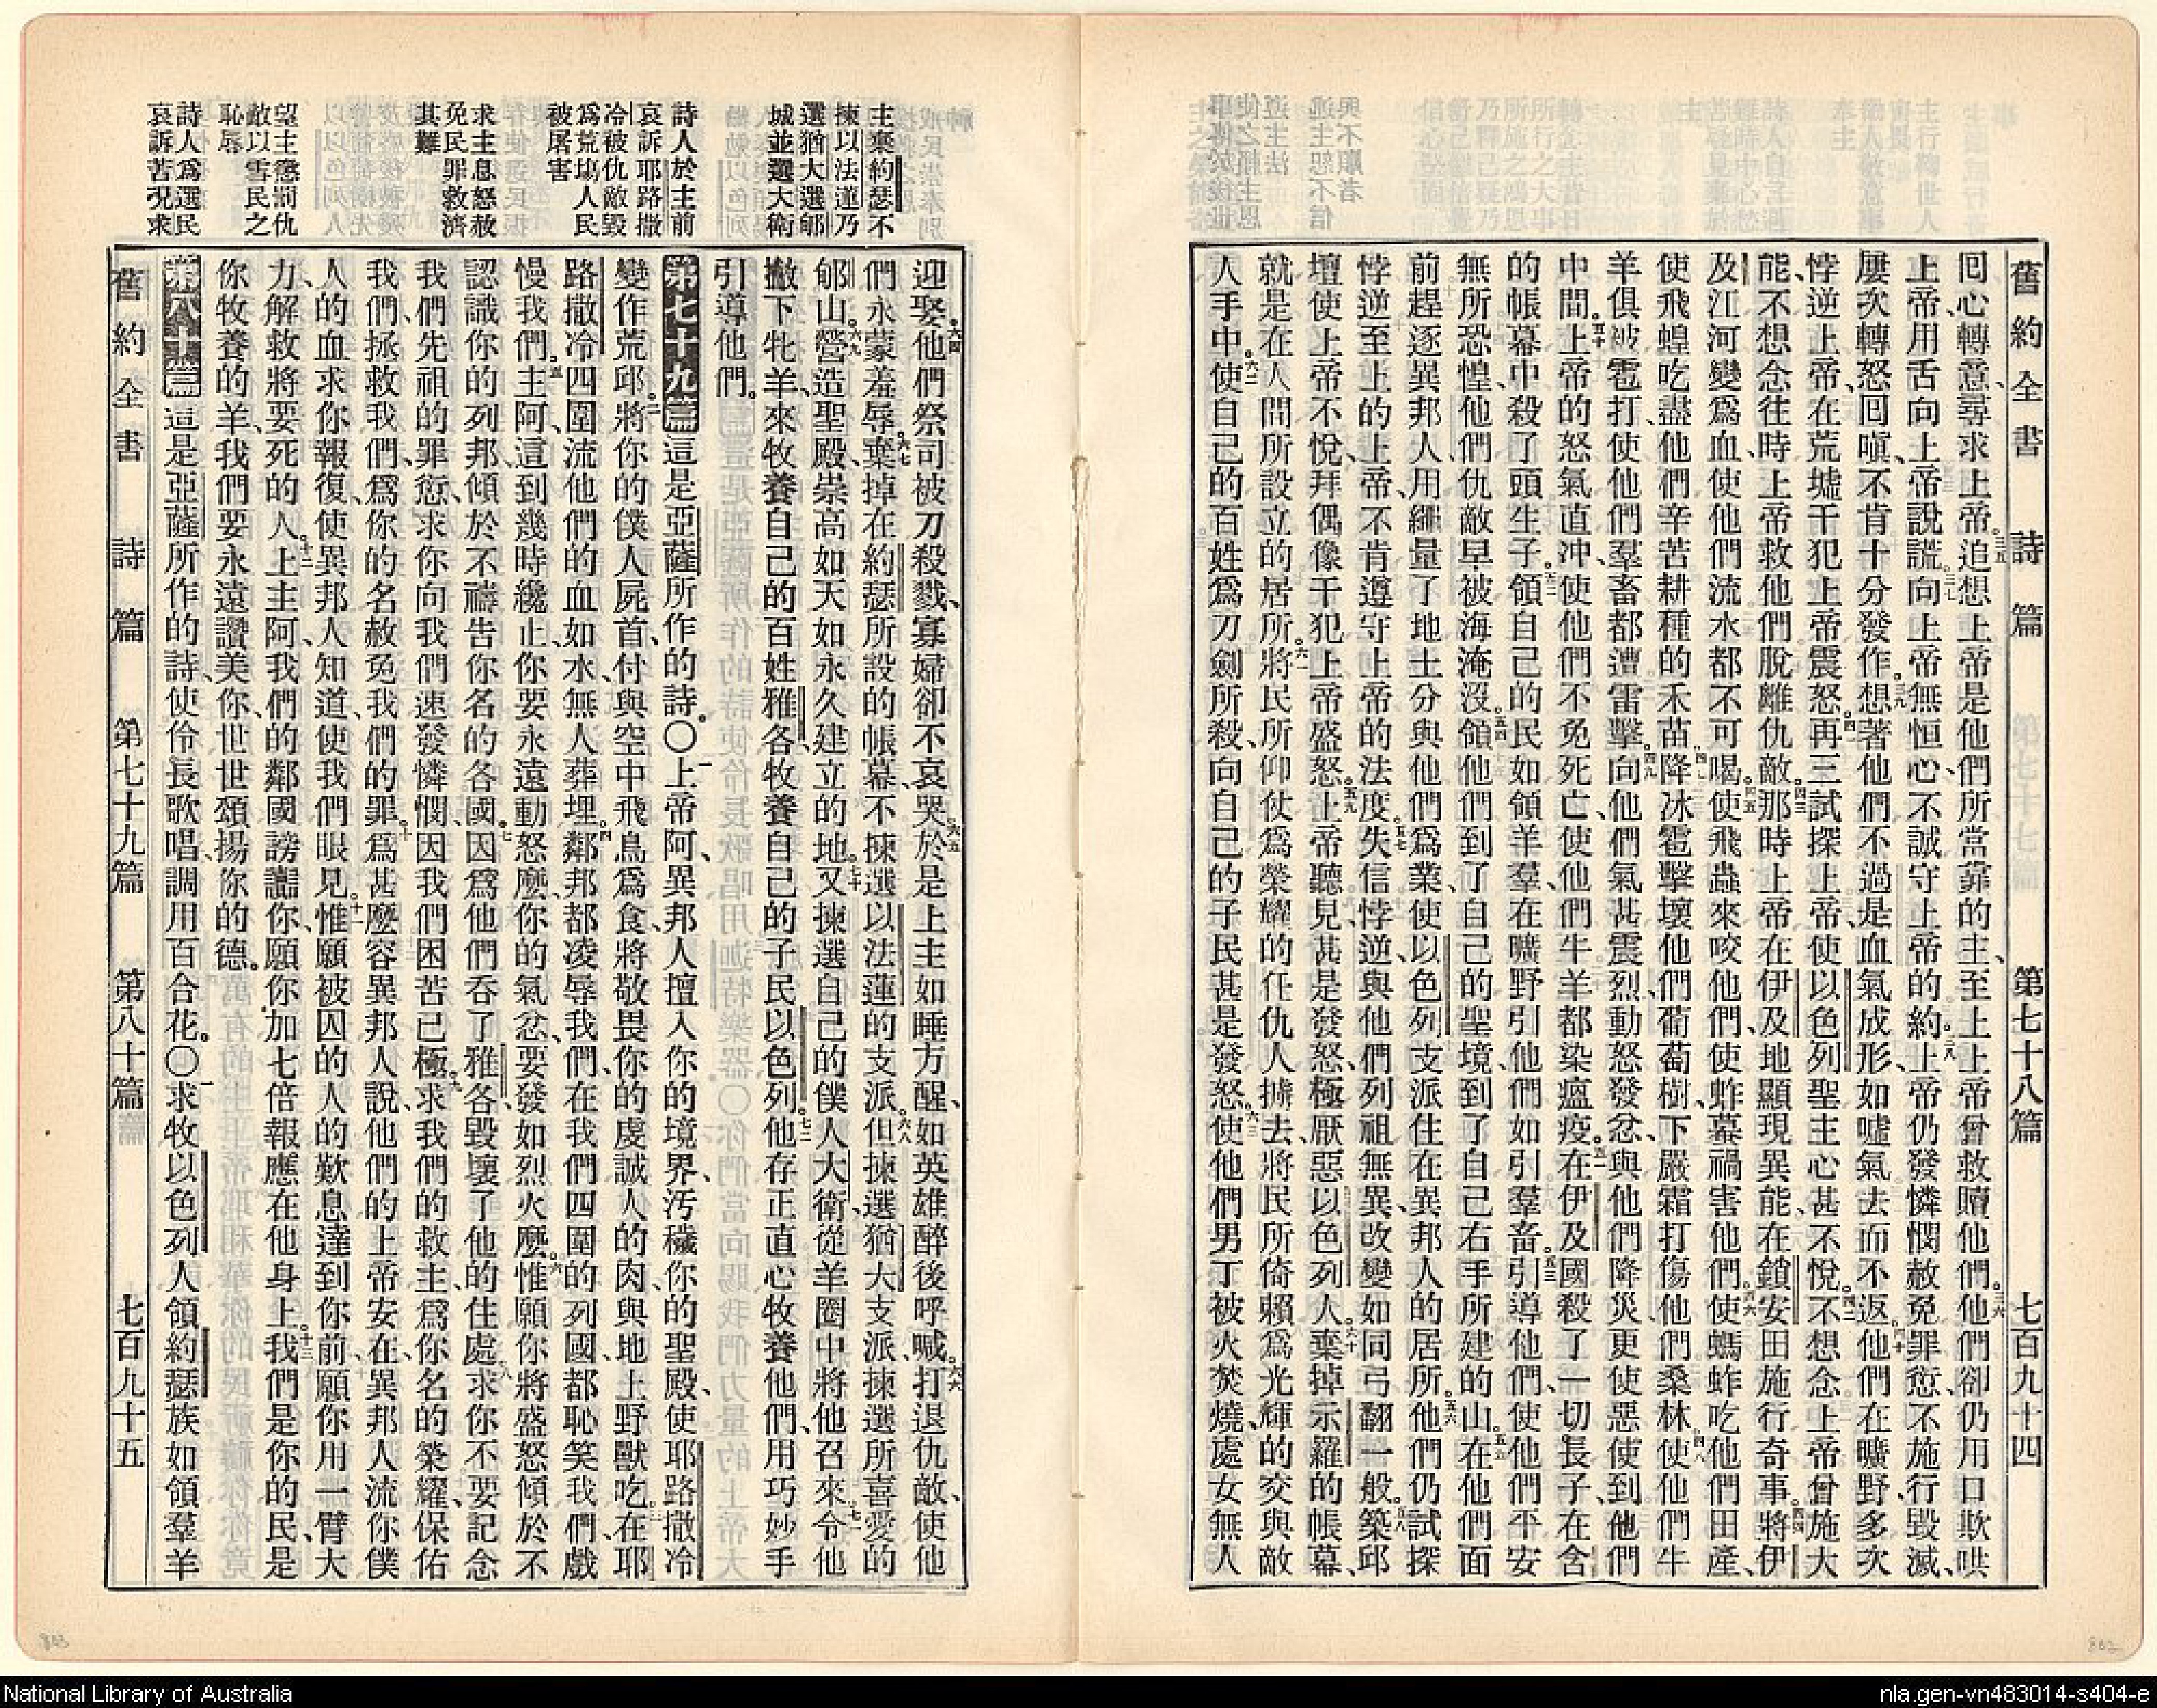 舊約全書 詩篇 第七十八篇 七百九十四
回心轉意、尋求上帝。追想上帝是他們所當靠的主、至上上帝曾救贖他們。他們卻仍用口欺哄
上帝、用舌向上帝說謊。向上帝無恒心、不誠守上帝的約。上帝仍發憐憫赦免罪愆、不施行毀滅、
屢次轉怒回嗔、不肯十分發作。想著他們不過是血氣成形、如噓氣去而不返。他們在曠野、多次
悖逆上帝、在荒墟干犯上帝震怒。再三試探上帝、使以色列聖主心甚不悅。不想念上帝曾施大
能、不想念往時上帝救他們脫離仇敵。那時上帝在伊及地顯現異能、在鎖安田施行奇事。將伊
及江河變爲血、使他們流水都不可喝。使飛蟲來咬他們、使蛤蟇禍害他們。使螞蚱吃他們田產、
使飛蝗吃盡他們辛苦耕種的禾苗。降冰雹擊壞他們葡萄樹、下嚴霜打傷他們桑林。使他們牛
羊俱被雹打、使他們羣畜都遭雷擊。向他們氣甚震烈、動怒發忿、與他們降災、更使惡使到他們
中間。上帝的怒氣直冲、使他們不免死亡、使他們牛羊都染瘟疫。在伊及國殺了一切長子、在含
的帳幕中殺了頭生子。領自己的民如領羊羣、在曠野引他們如引羣畜。引導他們、使他們平安
無所恐惶、他們仇敵早被海淹沒。領他們到了自己的聖境、到了自己右手所建的山。在他們面
前趕逐異邦人、用繩量了地土分與他們爲業、使以色列支派住在異邦人的居所。他們仍試探
悖逆至上的上帝、不肯遵守上帝的法度。失信悖逆、與他們列祖無異、改變如同弓翻一般。築邱
壇使上帝不悅、拜偶像干犯上帝盛怒。上帝聽見、甚是發怒、極厭惡以色列人。棄掉示羅的帳幕、
就是在人間所設立的居所。將民所仰仗爲榮耀的任仇人擄去、將民所倚賴爲光輝的交與敵
人手中。使自己的百姓爲刀劍所殺、向自己的子民甚是發怒。使他們男丁被火焚燒、處女無人
主棄約瑟不
揀以法蓮乃
選猶大選郇
城並選大衛
詩人於主前
哀訴耶路撒
冷被仇敵毀
爲荒塲人民
被屠害
求主息怒赦
免民罪救濟
其難
望主懲罰仇
敵以雪民之
恥辱
詩人爲選民
哀訴苦況求
迎娶。他們祭司被刀殺戮、寡婦卻不哀哭。於是上主如睡方醒、如英雄醉後呼喊。打退仇敵、使他
們永蒙羞辱。棄掉在約瑟所設的帳幕、不揀選以法蓮的支派。但揀選猶大支派、揀選所喜愛的
郇山。營造聖殿、崇高如天、如永久建立的地。又揀選自己的僕人大衛、從羊圈中將他召來。令他
撇下牝羊、來牧養自己的百姓雅各、牧養自己的子民以色列。他存正直心牧養他們、用巧妙手
引導他們。
第七十九篇 這是亞薩所作的詩。〇上帝阿、異邦人擅入你的境界、汚穢你的聖殿、使耶路撒冷
變作荒邱。將你的僕人屍首、付與空中飛鳥爲食、將敬畏你的虔誠人的肉、與地上野獸吃。在耶
路撒冷四圍流他們的血如水、無人葬埋。鄰邦都凌辱我們、在我們四圍的列國、都恥笑我們、戲
慢我們。主阿、這到幾時纔止、你要永遠動怒麽、你的氣忿、要發如烈火麽。惟願你將盛怒傾於不
認識你的列邦、傾於不禱告你名的各國。因爲他們吞了雅各、毀壞了他的住處。求你不要記念
我們先祖的罪愆、求你向我們速發憐憫、因我們困苦已極。求我們的救主、爲你名的榮耀、保佑
我們、拯救我們、爲你的名赦免我們的罪。爲甚麽容異邦人說、他們的上帝安在、異邦人流你僕
人的血、求你報復、使異邦人知道、使我們眼見。惟願被囚的人的歎息達到你前、願你用一臂大
力、解救將要死的人。上主阿、我們的鄰國謗讟你、願你加七倍報應在他身上。我們是你的民、是
你牧養的羊、我們要永遠讚美你、世世頌揚你的德。
第八十篇 這是亞薩所作的詩、使伶長歌唱、調用百合花。〇求牧以色列人、領約瑟族如領羣羊
舊約全書 詩篇 第七十九篇 第八十篇 七百九十五
803
802
National Library of Australia
nla.gen-vn483014-s404-e